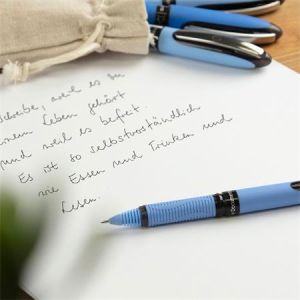 schreibe, weil es zu
meinem Leben gehört
und weil es befreit.
Es ist so selbstverständlich
wie Essen und Trinken und
Lesen.